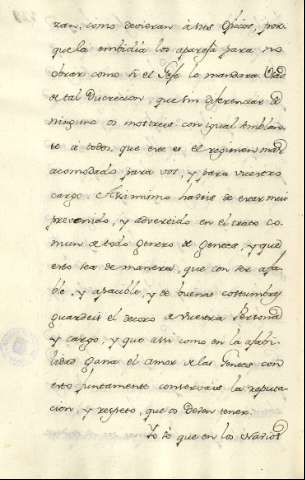 zan, como devieran à sus oficios, por-
que la embidia los aparesa para no
obrar como si el Gefe lo mandara. Usad
de tal Discrecion, que sin diferenciar à
ninguno os mostreis con igual semblan-
te a todos, que este es el regimen mas
acomodado para vos, y para vuestro
cargo. Assimismo haveis de estar mui
prevenido, y advertido en el trato co-
mun de todo genero de Gentes, y que
esto sea de manera, que con ser afa-
ble, y apacible, y de buenas costumbres
guardeis el decoro a vuestra Persona
y cargo, y que assi como en la afabi-
lidad gana el amor de las Gentes con
esto juntamente conservais la reputa-
cion, y respeto, que os deven tener.
Yo sè que en los